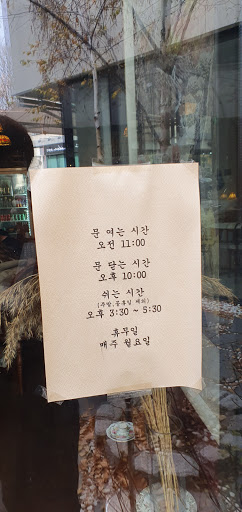 문 여는 시간
오전 11:00
문 닫는 시간
오후 10:00
쉬는 시간
(주말,공휴일 제외)
오후 3:30 ~ 5:30
휴무일
매주 월요일